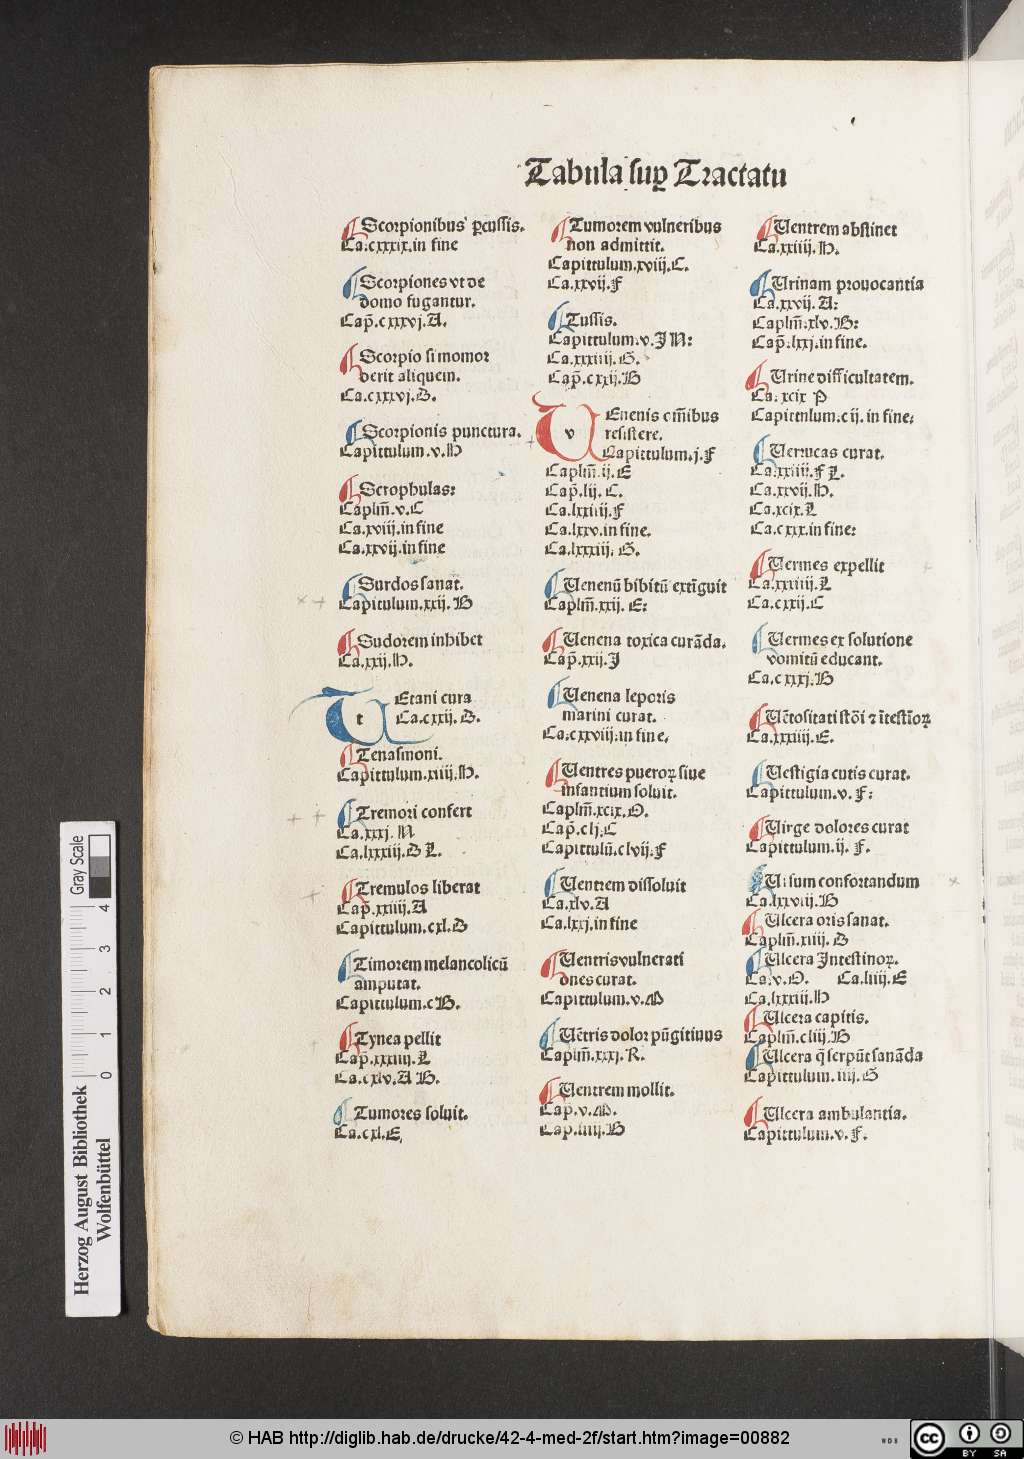 Tabula suꝑ Tractatu
Scorpionibus ꝑcussis.
Ca.cxxxix.in fine
Scorpiones vt de
domo fugantur.
Cap̄.cxxxvj.A.
Scorpio si momor
derit aliquem.
Ca.cxxxvj.B.
Scorpionis punctura.
Capittulum.v.H
Scrophulas:
Caplm̄.v.C
Ca.xviij.in fine
Ca.xxvij.in fine
Surdos sanat.
Capitulum.xxij.B
Sudorem inhibet
Ca.xxij.H.
TEtani cura
t
Ca.cxxij.B.
Tenasmoni.
Capittulum.xiiij.H.
Tremori confert
Ca.xxxj.N
Ca.lxxxiij.B L.
Tremulos liberat
Cap̄.xxiiij.A
Capittulum.cxl.B
Timorem melancolicū
amputat.
Capittulum.c B.
Tynea pellit
Cap̄.xxxiiij.L
Ca.cxlv.A B.
Tumores soluit.
Ca.cxl.E,
Tumorem vulneribus
non admittit.
Capittulum.xviij.C.
Ca.xxvij.F
Tussis.
Capittulum.v.J N:
Ca.xxxiiij.G.
Cap̄.cxxij.B
VEnenis om̄ibus
v
resistere.
Capittulum.j.F
Caplm̄.ij.E
Cap̄.lij.C.
Ca.lxxiiij.F
Ca.lxxv.in fine.
Ca.lxxxiij.G.
Venenū bibitū extīguit
Caplm̄.xxij.E:
Venena toxica curāda.
Cap̄.xxij.J
Venena leporis
marini curat.
Ca.cxxviij.in fine.
Ventres pueroꝝ siue
infantium soluit.
Caplm̄.xcix.O.
Cap̄.clj.C
Capittulū.clvij.F
Ventrem dissoluit
Ca.xlv.A
Ca.lxxj.in fine
Ventris vulnerati
ones curat.
Capittulum.v.M
Vētris dolor pūgitiuus
Caplm̄.xxxj.R.
Ventrem mollit.
Cap.v.M.
Cap.iiij.B
Ventrem abstinet
Ca.xxiiij.H.
Urinam prouocantia
Ca.xxvij.A:
Caplm̄.xlv.B:
Cap̄.lxxj.in fine.
Urine difficultatem.
Ca.xcix P
Capittulum.cij.in fine:
Verrucas curat.
Ca.xxiiij.F L.
Ca.xxvij.H.
Ca.xcix.L
Ca.cxxx.in fine:
Vermes expellit
Ca.xxxiiij.L
Ca.cxxij.C
Vermes ex solutione
vomitū educant.
Ca.cxxxj.B
Vētositati stōi ⁊ ītestīoꝝ
Ca.xxxiiij.E.
Vestigia cutis curat.
Capittulum.v.F:
Virge dolores curat
Capittulum.ij.F.
Visum confortandum
Ca.lxxviij.B
Ulcera oris sanat.
Caplm̄.xiiij.B
Ulcera Intestinoꝝ.
Ca.v.O. Ca.liiij.E
Ca.lxxxiij.H
Ulcera capitis.
Caplm̄.cliij.B
Ulcera q̄ serpūt sanāda
Capittulum.iiij.G
Ulcera ambulantia.
Capittulum.v.F.
Gray Scale
0 1 2 3 4
Herzog August Bibliothek
Wolfenbüttel
© HAB http://diglib.hab.de/drucke/42-4-med-2f/start.htm?image=00882
WDB
cc BY SA